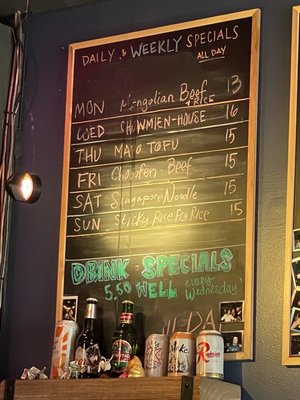 DAILY & WEEKLY SPECIALS
ALL DAY
MON Mongolian Beef 13
+ RICE
WED CHOWMIEN-HOUSE 16
THU MAPO TOFU 15
FRI Chowfen-Beef 15
SAT Singapore Noodle 15
SUN Sticky Rice Fry Rice 15
DRINK SPECIALS
5.50 WELL EVERY
Wednesday!